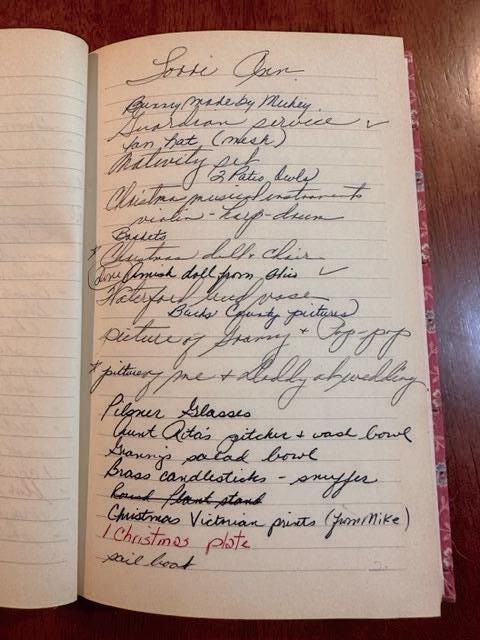 Lorri Ann
Bunny made by Mickey
Guardian service ✓
fan, hat (mesh)
Nativity set
(2 Patio Owls
Christmas musical instruments
violin - harp - drum
Baskets
* Christmas doll + chair
(one Amish doll from Ohio ✓
Waterford bud vase
Bucks County pictures)
picture of Granny + Pop-pop
* picture of me + Daddy at wedding
Pilsner Glasses
Aunt Rita's pitcher + wash bowl
Granny's salad bowl
Brass candlesticks - snuffer
Round Plant stand
Christmas Victorian prints (from Mike)
1 Christmas plate
sail boat